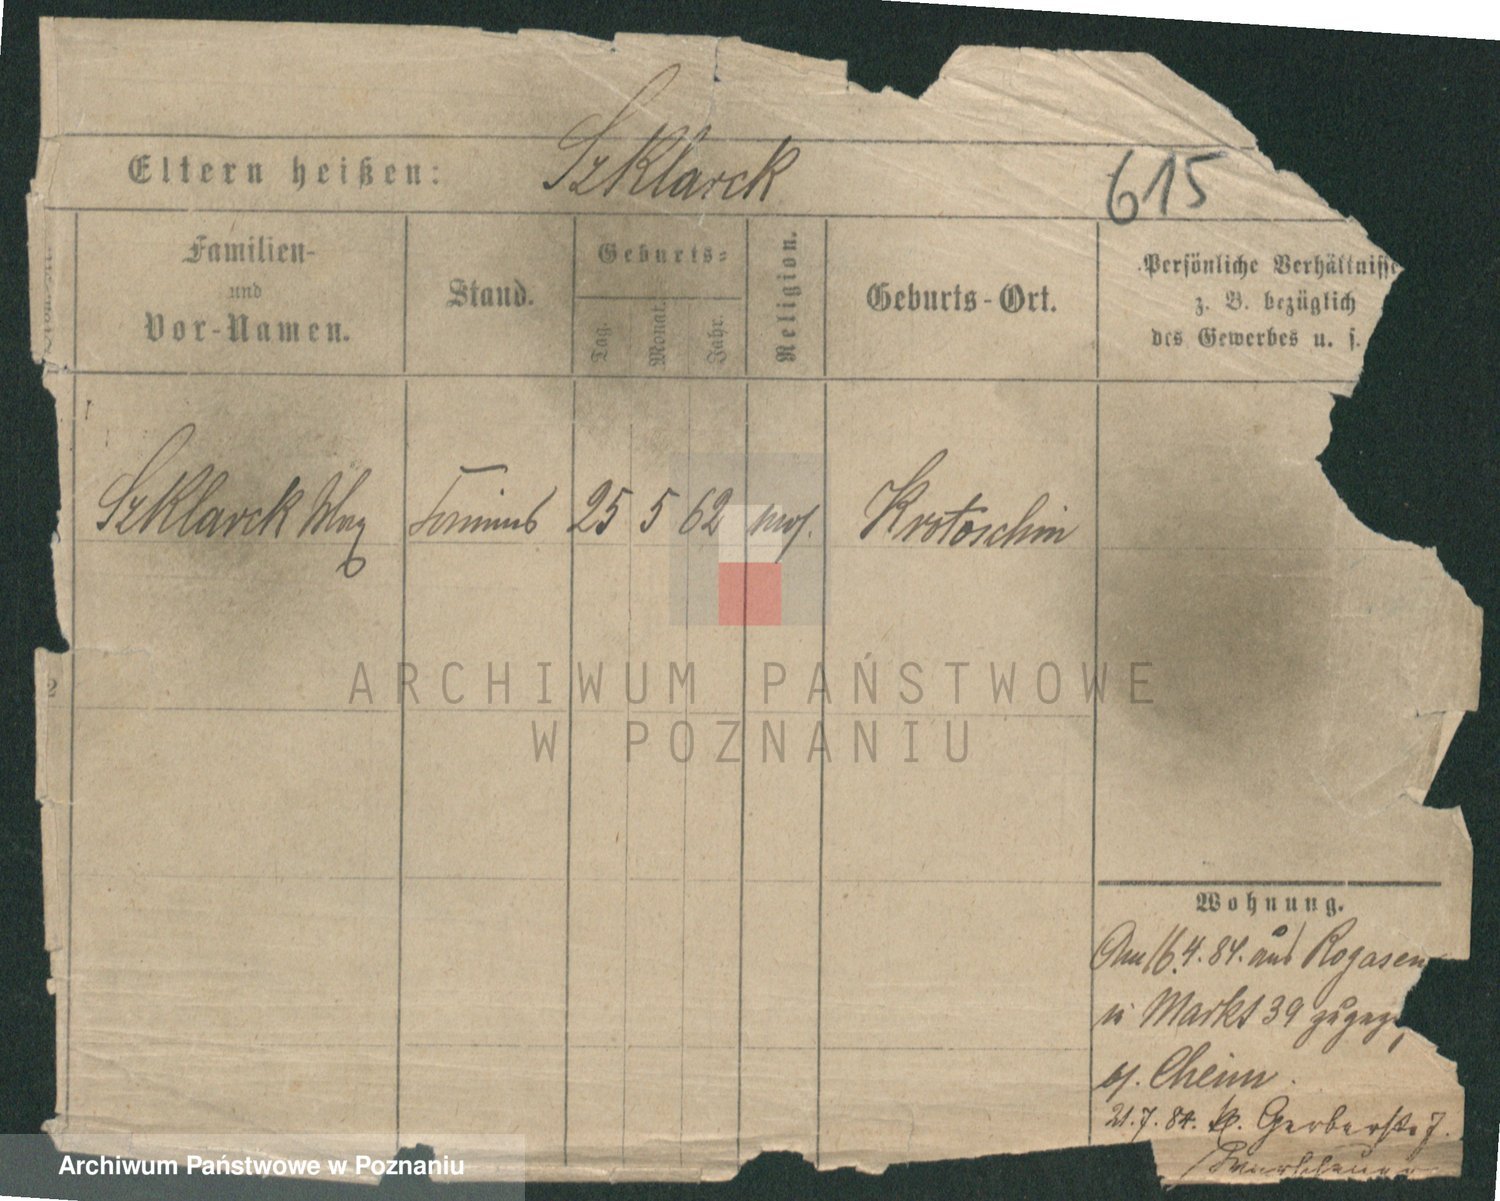 Eltern heißen: Szklarck 615
Familien-
und
Vor-Namen.
Stand.
Geburts-
Tag.
Monat.
Jahr.
Religion.
Geburts-Ort.
Persönliche Verhältnisse
z. B. bezüglich
des Gewerbes u. s.
Szklarck Max 25 5 62 mos. Krotoschin
2
ARCHIWUM PAŃSTWOWE
W POZNANIU
Wohnung.
Am 16.4.84. aus Rogasen
Markt 39 zugez
Cheim.
21.7.84. Gerberstr. 7.
Archiwum Państwowe w Poznaniu